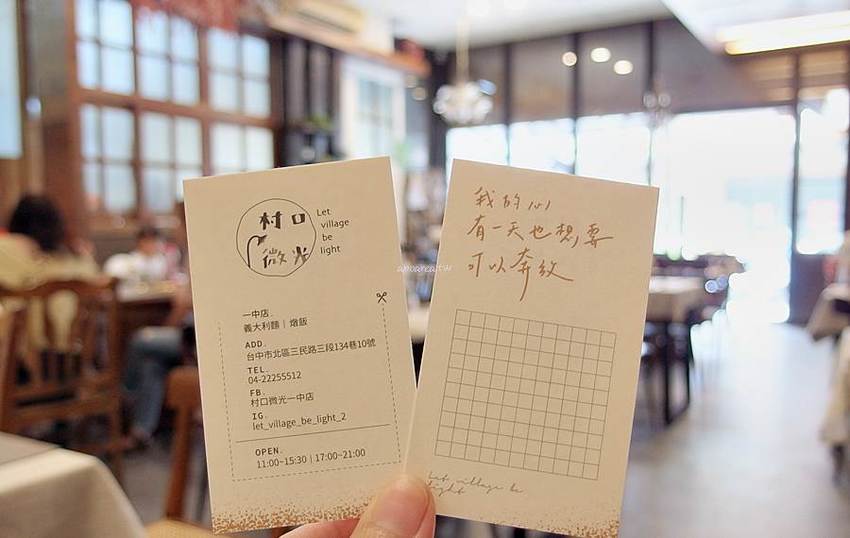 村口
微光
Let
village
be
light
一中店.
義大利麵｜燉飯
ADD.
台中市北區三民路三段134巷10號
TEL.
04-22255512
FB.
村口微光一中店
IG.
let_village_be_light_2
OPEN.
11:00~15:30｜17:00~21:00
我的心
有一天也想要
可以奔放
let village be
light